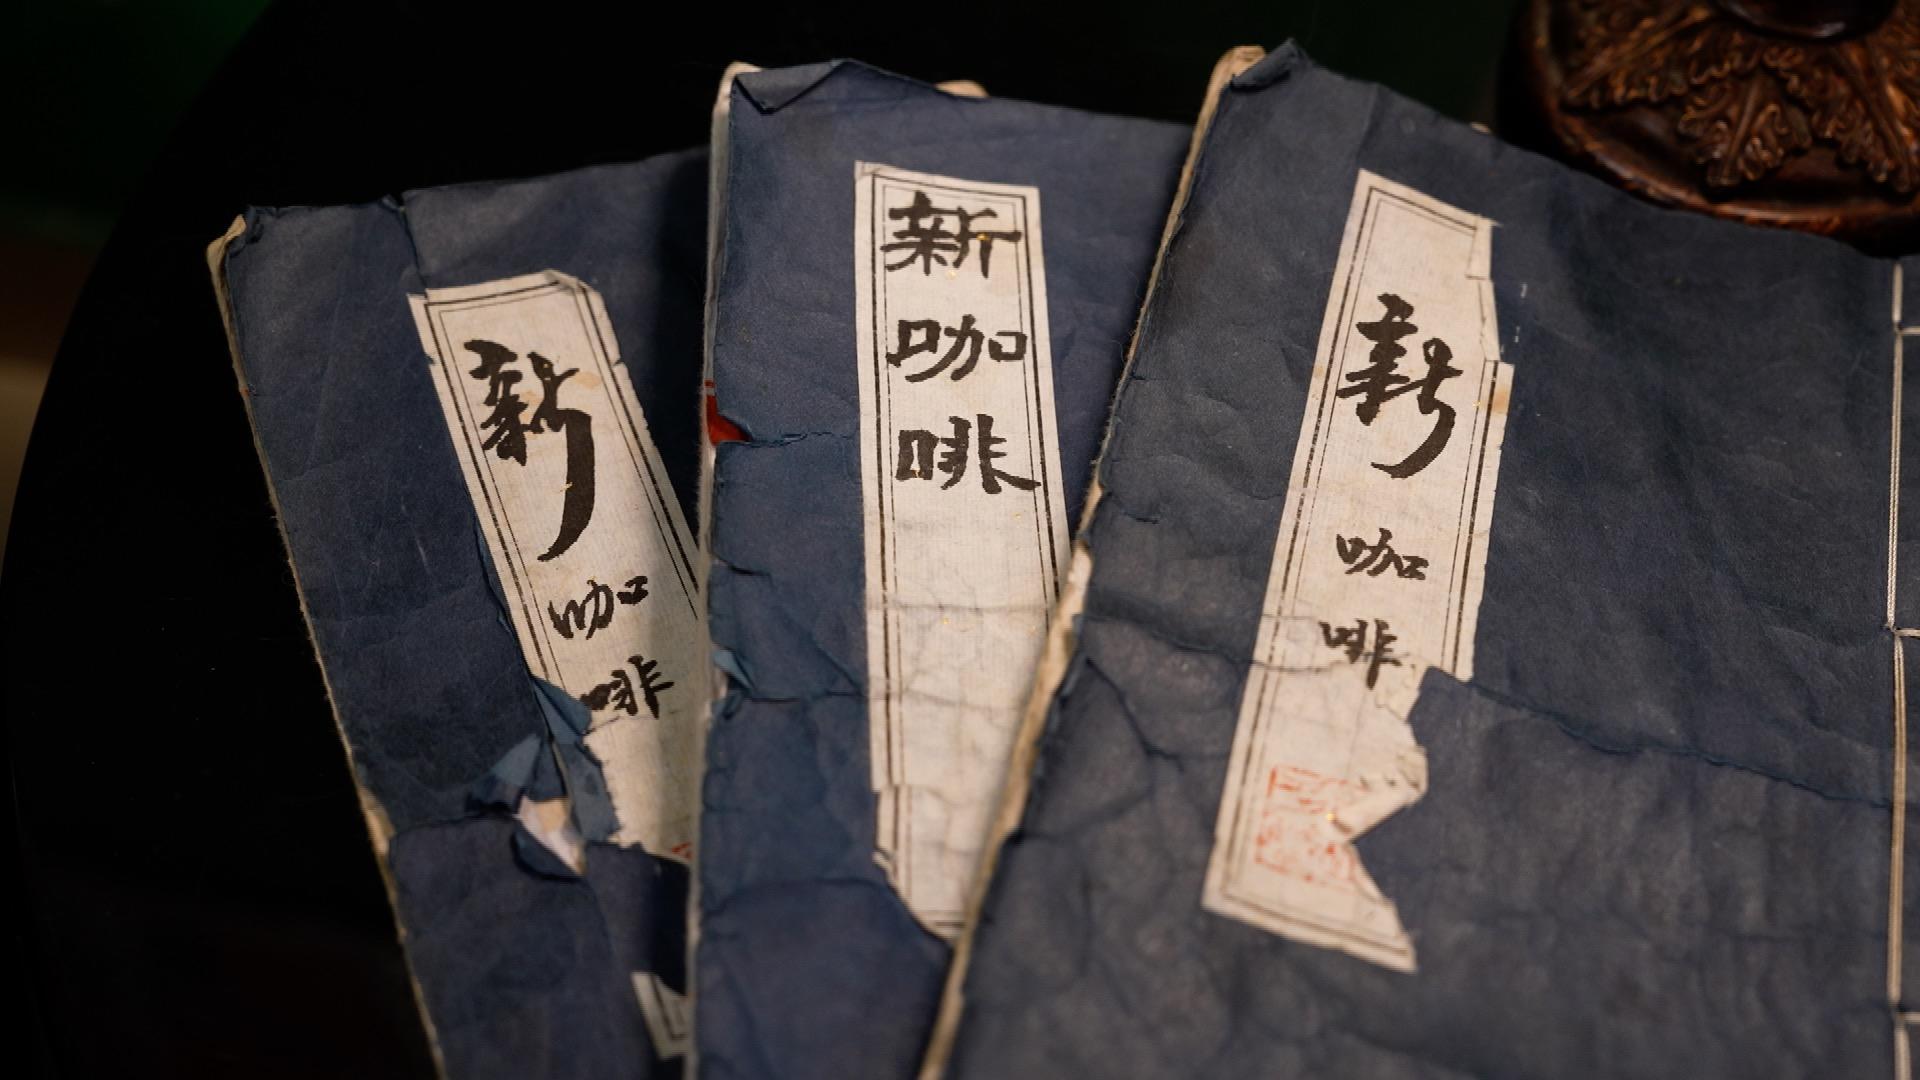 新咖啡
新咖啡
新咖啡